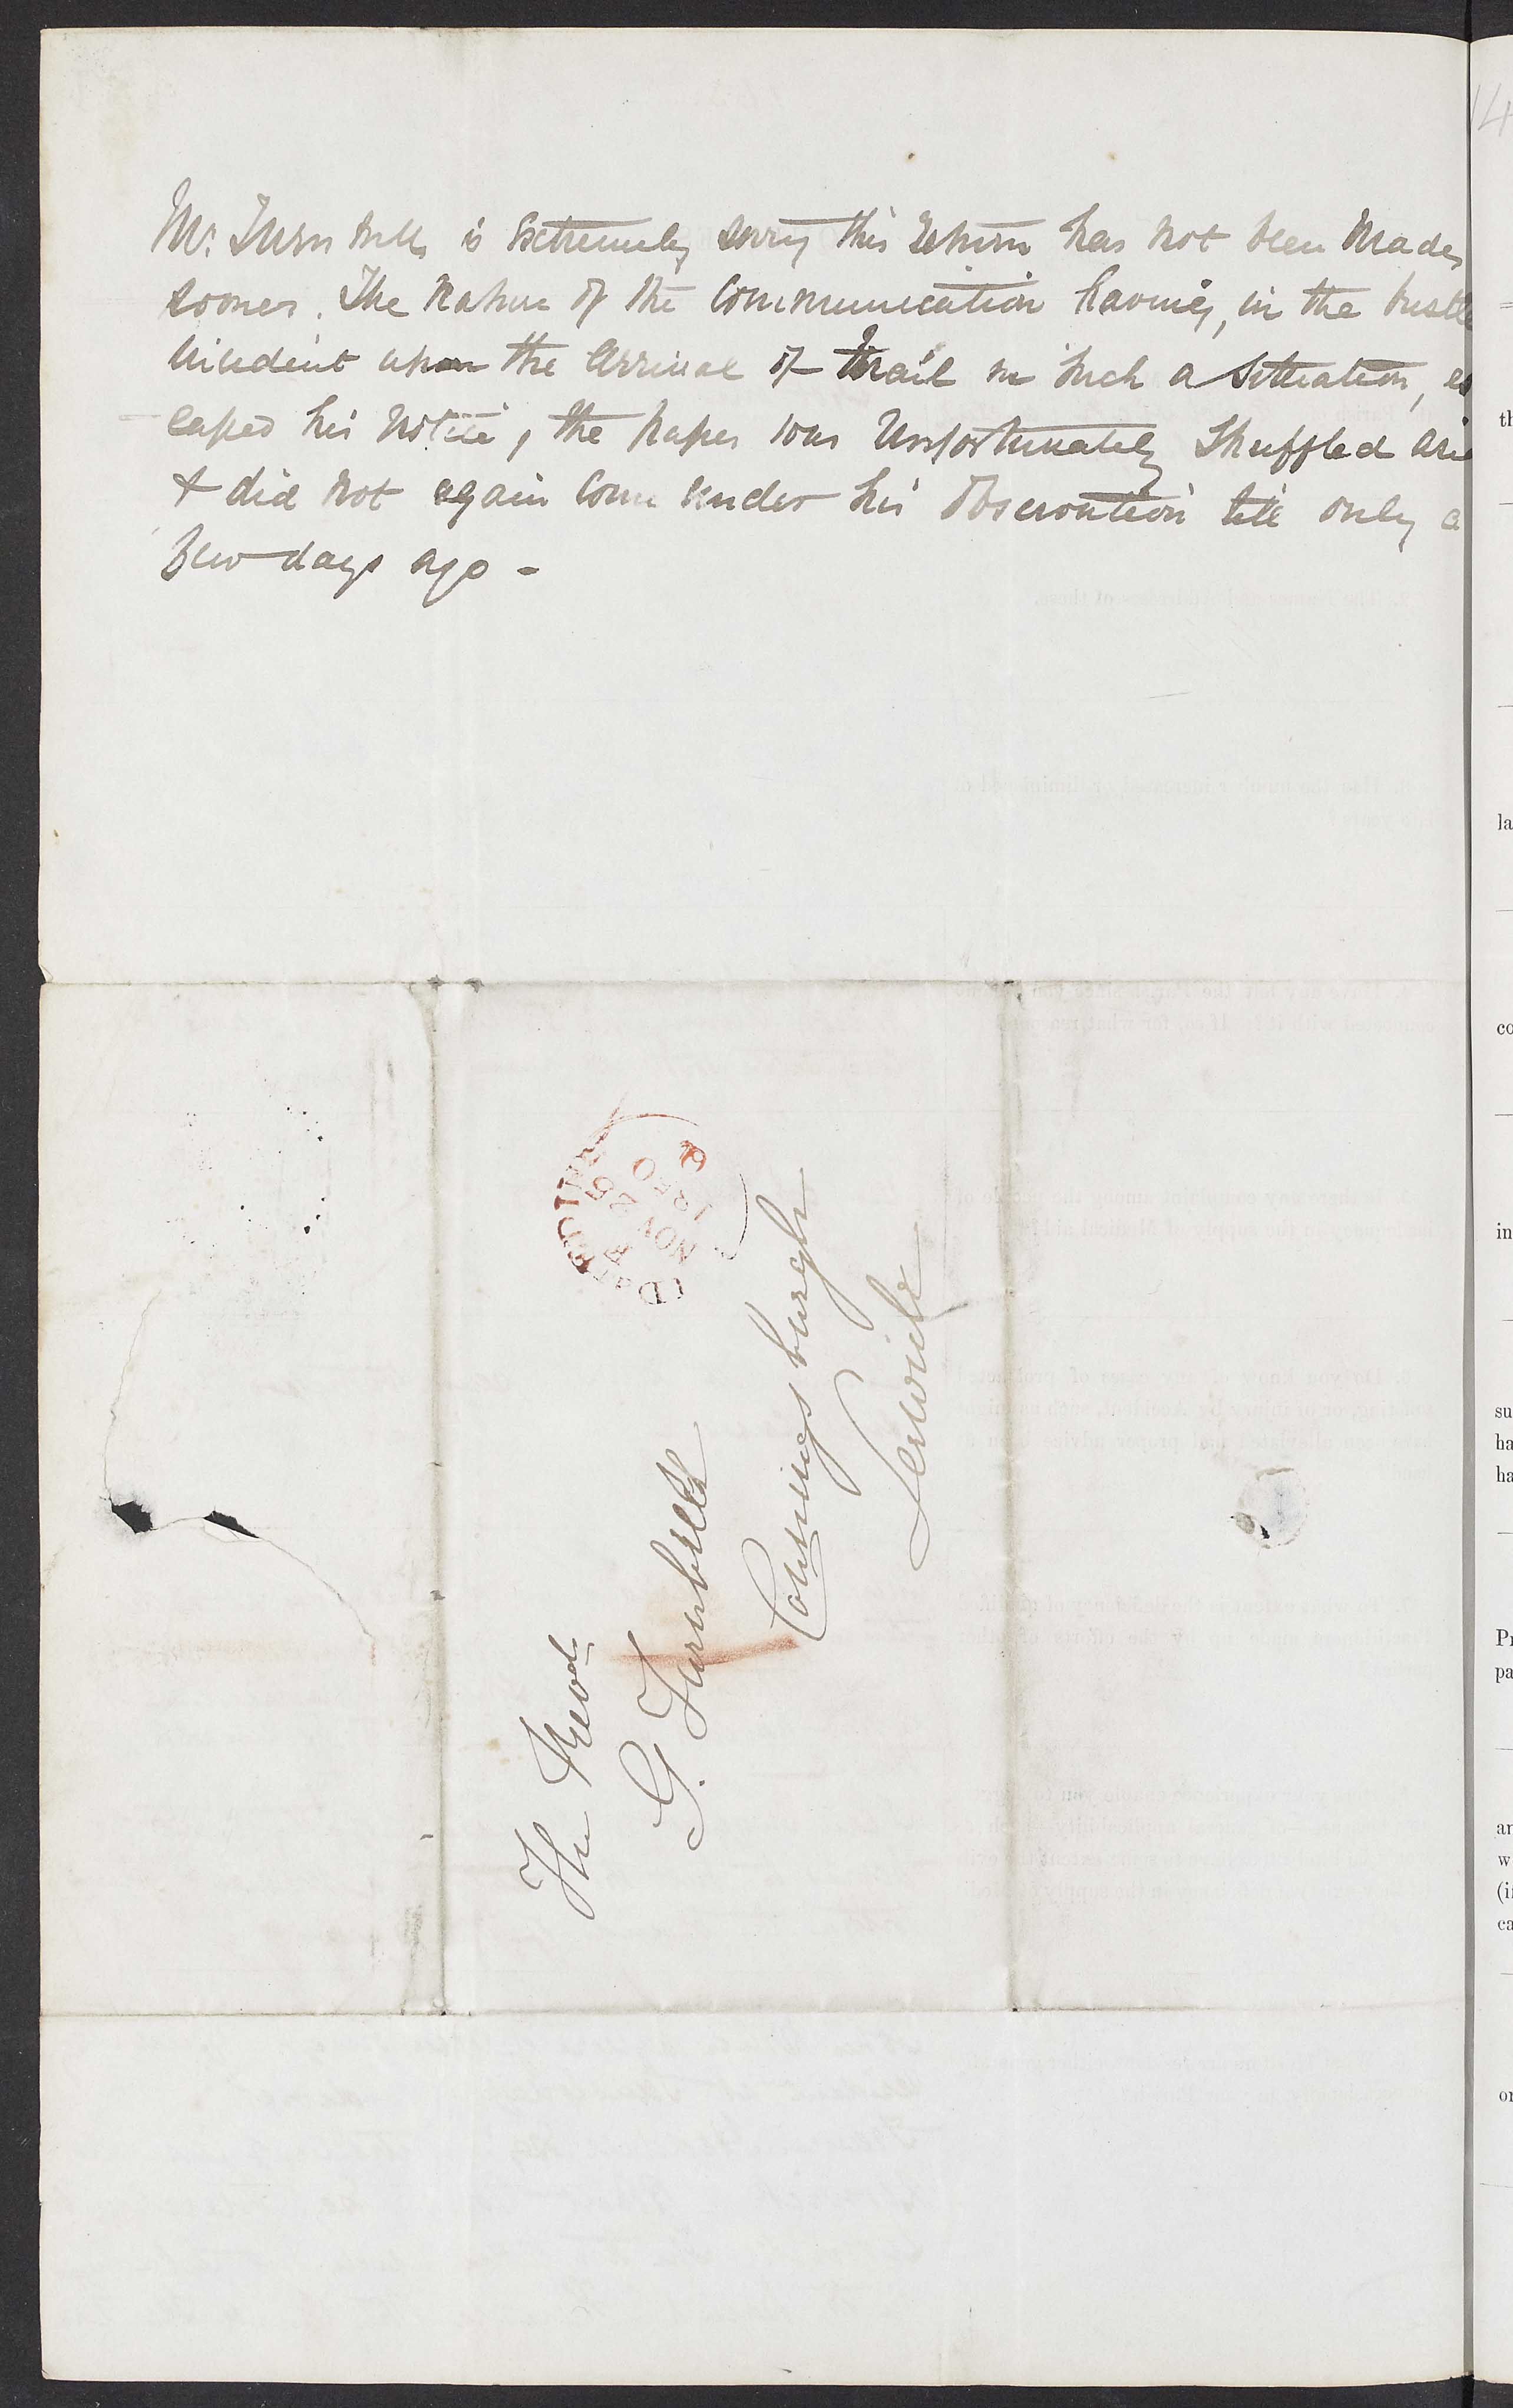 Mr. Turnbull is Extremely sorry this Return has not been Made
sooner. The Nature of the Communication having, in the bustle
incident upon the Arrival of Mail in such a Situation, es
caped his Notice, the paper was Unfortunately Shuffled
& did not again Come under his Observation till only a
few days ago -
The Revd.
G. Turnbull
Conningsburgh
Lerwick
NOV 25
1850
14
th
la
co
in
su
ha
ha
Pr
pa
an
w
(i
ca
or